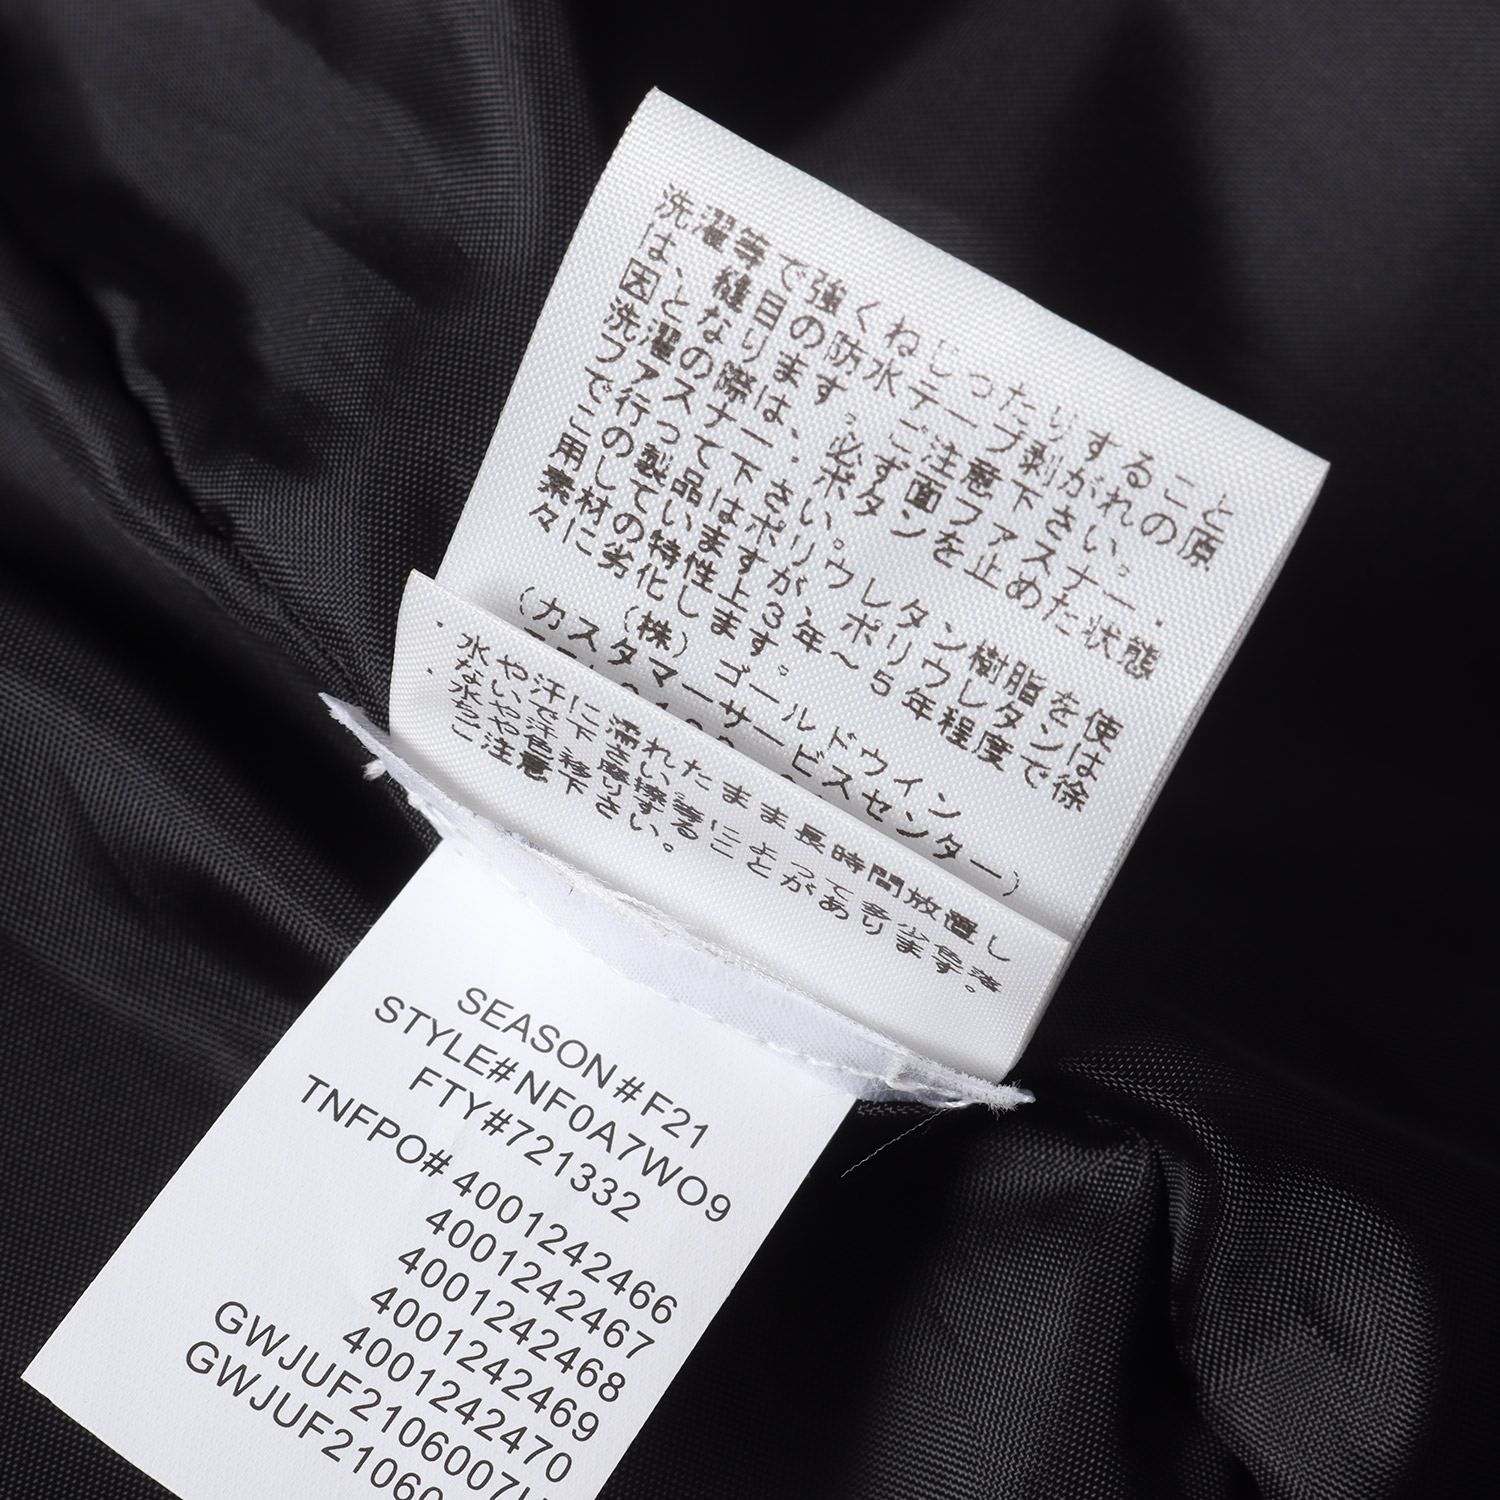 洗濯等で強くねじったりすること
は、縫目の防水テープ剥がれの原
因となります。ご注意下さい。
洗濯の際は、必ず面ファスナー．
ファスナー．ボタンを止めた状態
で行って下さい。
この製品はポリウレタン樹脂を使
用していますが、ポリウレタンは
素材の特性上３年～５年程度で徐
々に劣化します。
(株)ゴールドウイン
(カスタマーサービスセンター)
・水や汗に濡れたまま長時間放置し
ないで下さい。
・水や汗、摩擦等によって多少色落
ちや色移りすることがあります。
ご注意下さい。
SEASON#F21
STYLE#NF0A7WO9
FTY#721332
TNFPO#4001242466
4001242467
4001242468
4001242469
4001242470
GWJUF2106007
GWJUF21060